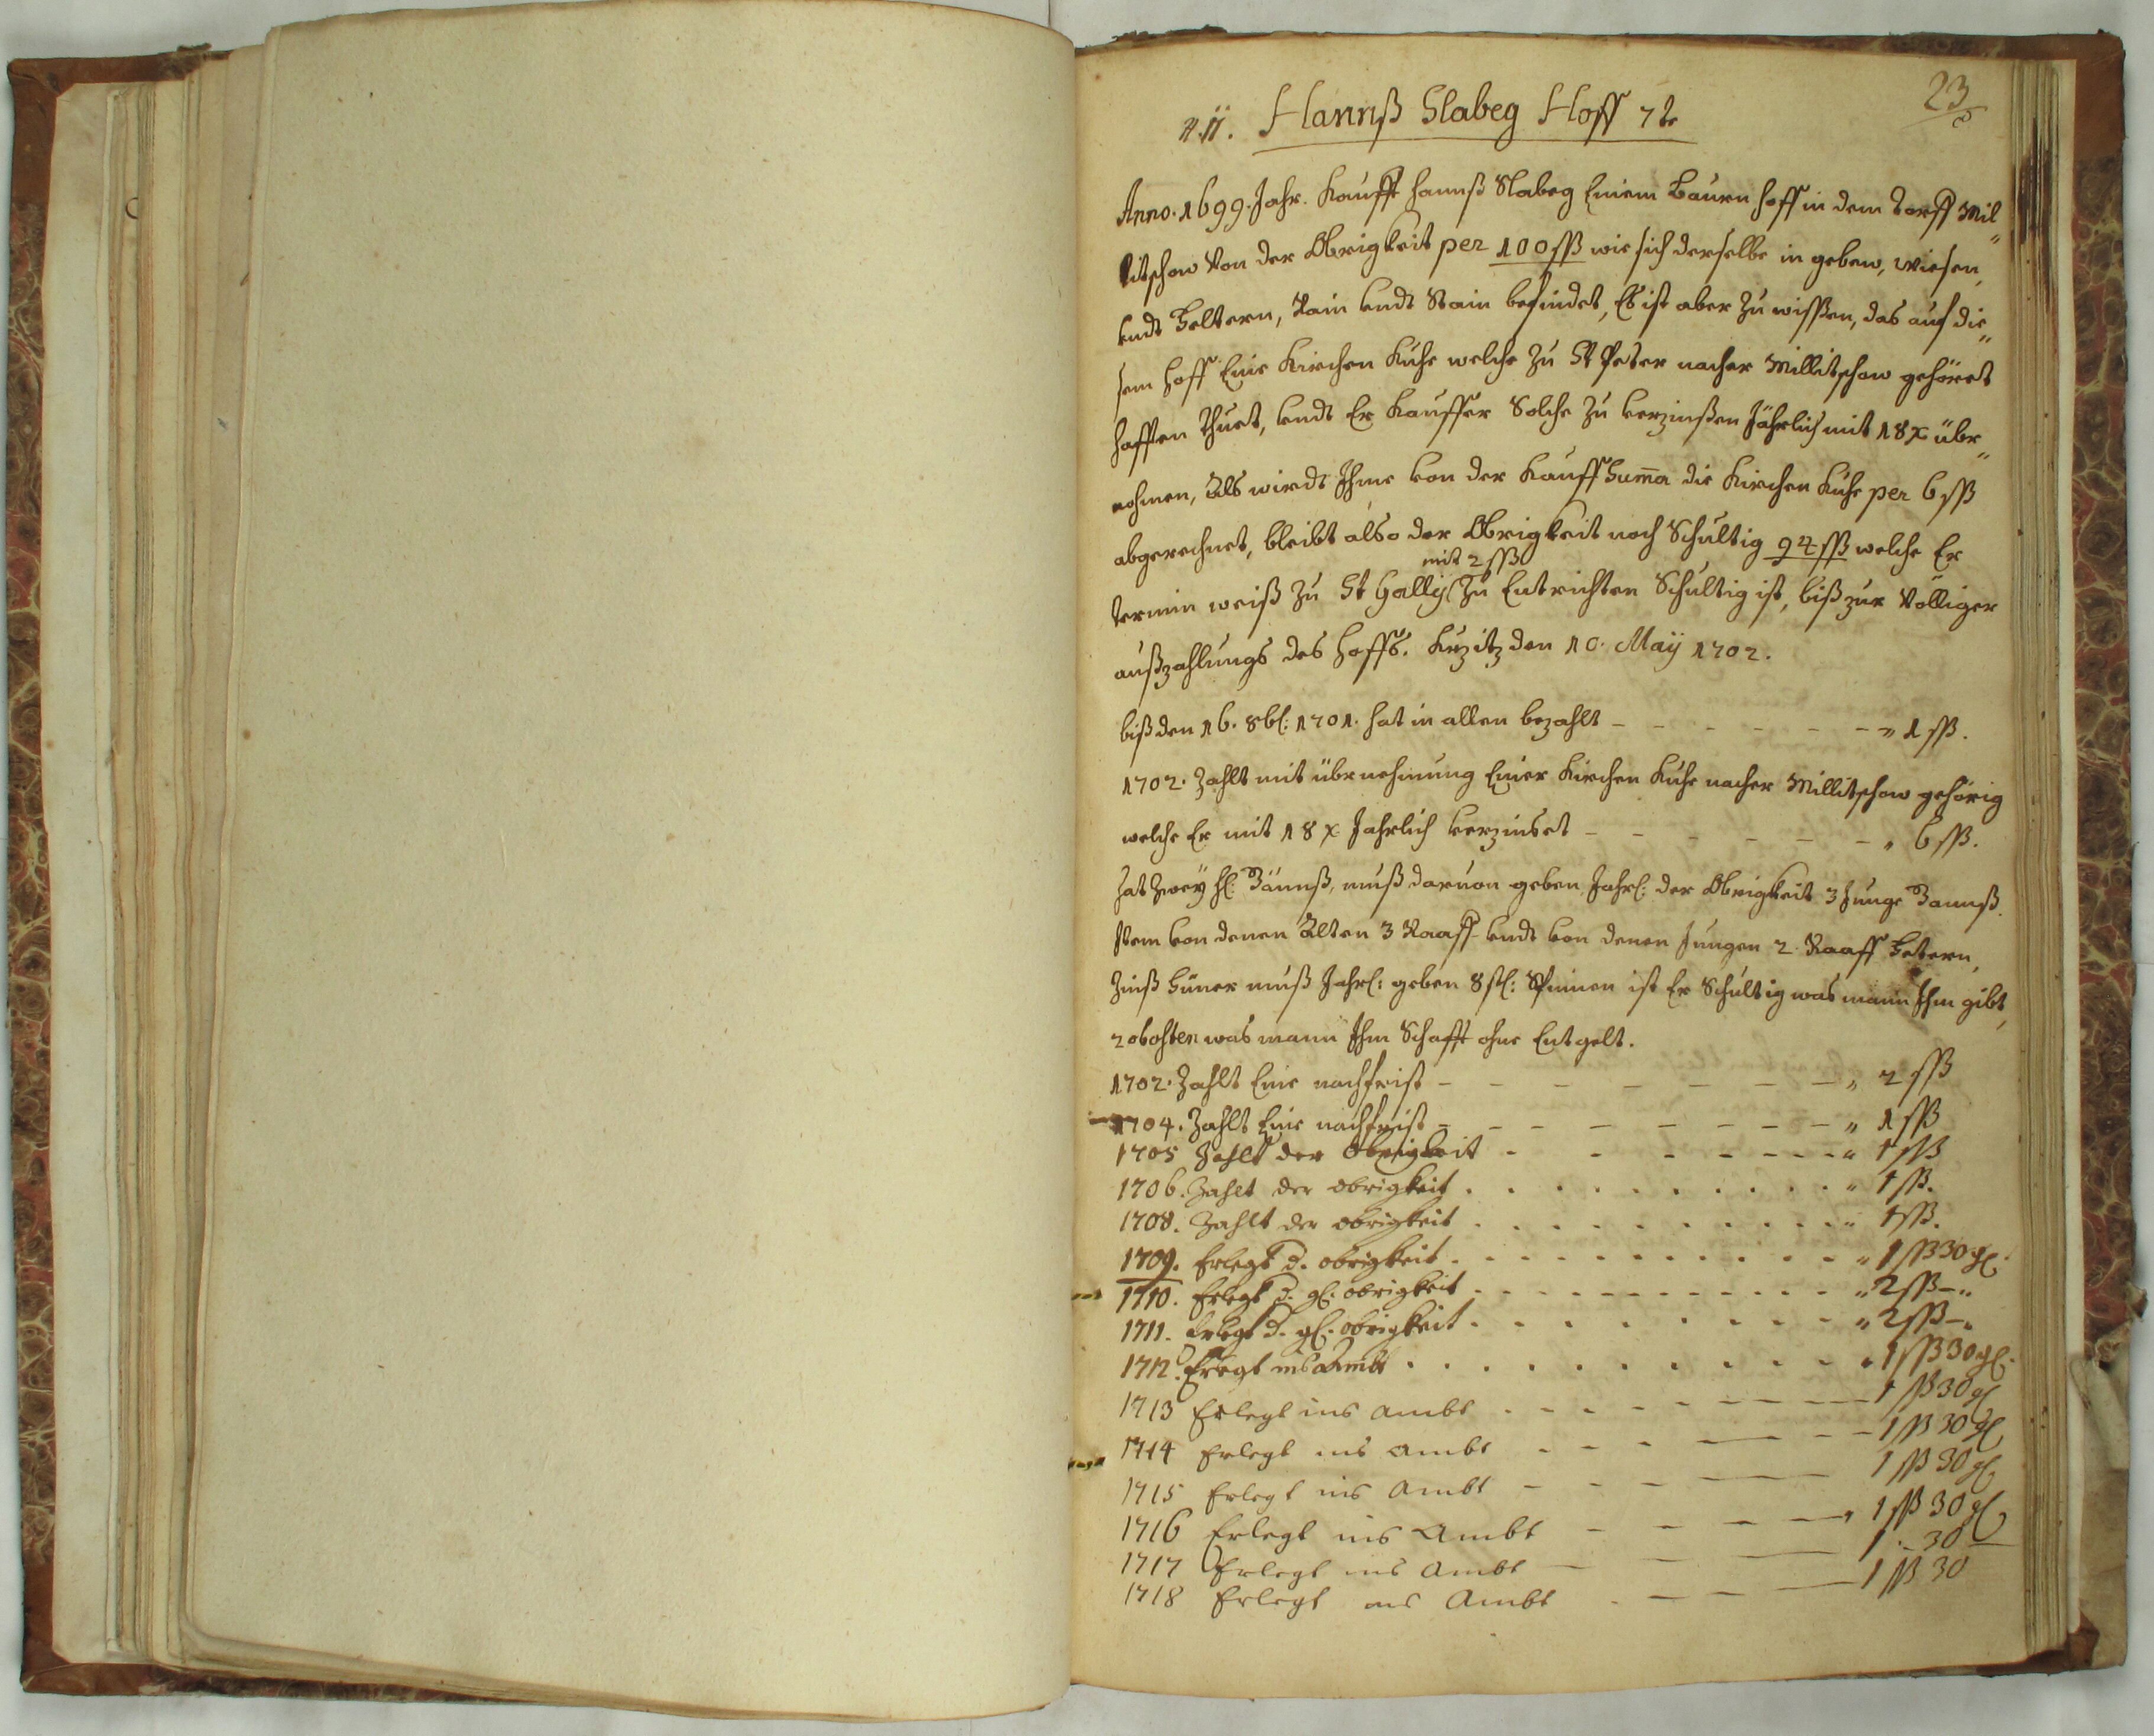 23
N. 11. Hannß Slabeg Hoff
Anno. 1699. Jahr. Kaufft Hannß Slabeg Einem Baurn hoff in dem Torff Mil„
litschow Von der Obrigkeit per 100 ßß wie sich derselbe in gebew, wiesen,
undt Feltern, Rain undt Stain befindet, Es ist aber zu wissen, das auf die„
sem Hoff Eine Kirchen Kuhe welche zu St Peter nacher Millitschow gehöret
hafften thuet, undt Er Kauffer Solche zu verzinßen Jährlich mit 18 x übr„
nohmen, Als wirdt Ihme von der Kauff Suma die Kirchen Kuhe per 6 ßß
abgerechnet, bleibt also der Obrigkeit noch Schultig 94 ßß welche Er
mit 2 ßß
termin weiß zu St Gallij zu Entrichten Schultig ist, biß zur Völliger
außzahlungs des Hoffs. den 10. Maÿ 1702.
biß den 16. 8bl: 1701. hat in allen bezahlt - - - - - - „ 1 ßß.
1702. Zahlt mit übrnehmung Einer Kirchen Kuhe nacher Millitschow gehörig
welche Er mit 18 x Jahrlich verzinset - - - - - - „ 6 ßß.
Hat Zweÿ muß daruon geben Jahrl: der Obrigkeit 3 Junge
Item von denen Alten 3 Raaff undt von denen Jungen 2 Raaff Fetern,
Zinß Hüner muß Jahrl: geben 8 st: Spinnen ist Er Schultig was mann Ihm gibt,
was mann Ihm Schafft ohne Entgelt.
1702. Zahlt Eine nachfrist - - - - - - - „ 2 ßß
1704. Zahlt Eine nachfrist - - - - - - - „ 1 ßß
1705 Zahlt der Obrigkeit - - - - - - - „ 1 ßß
1706. Zahlt der obrigkeit . . . . . . . . . . „ 1 ß.
1708. Zahlt der obrigkeit . . . . . . . . . . „ 1 ßß.
1709. Erlegt d. obrigkeit . . . . . . . . . . „ 1 ßß 30 gl.
1710. Erlegt d. gl. obrigkeit . . . . . . . . . . „ 2 ßß - „
1711. Erlegt d. gl. obrigkeit . . . . . . . . . . „ 2 ßß - „
1712. Erlegt ins Ambt . . . . . . . . . . „ 1 ßß 30 gl.
1713 Erlegt ins Ambt . - - - - - - - 1 ß 30 gl
1714 Erlegt ins Ambt - - - - - - - 1 ßß 30 gl
1715 Erlegt ins Ambt - - - - - 1 ßß 30 gl
1716 Erlegt ins Ambt - - - - - 1 ßß 30 gl
1717 Erlegt ins Ambt - - - 1 .- 30
1718 Erlegt ins Ambt . - - - 1 ßß 30